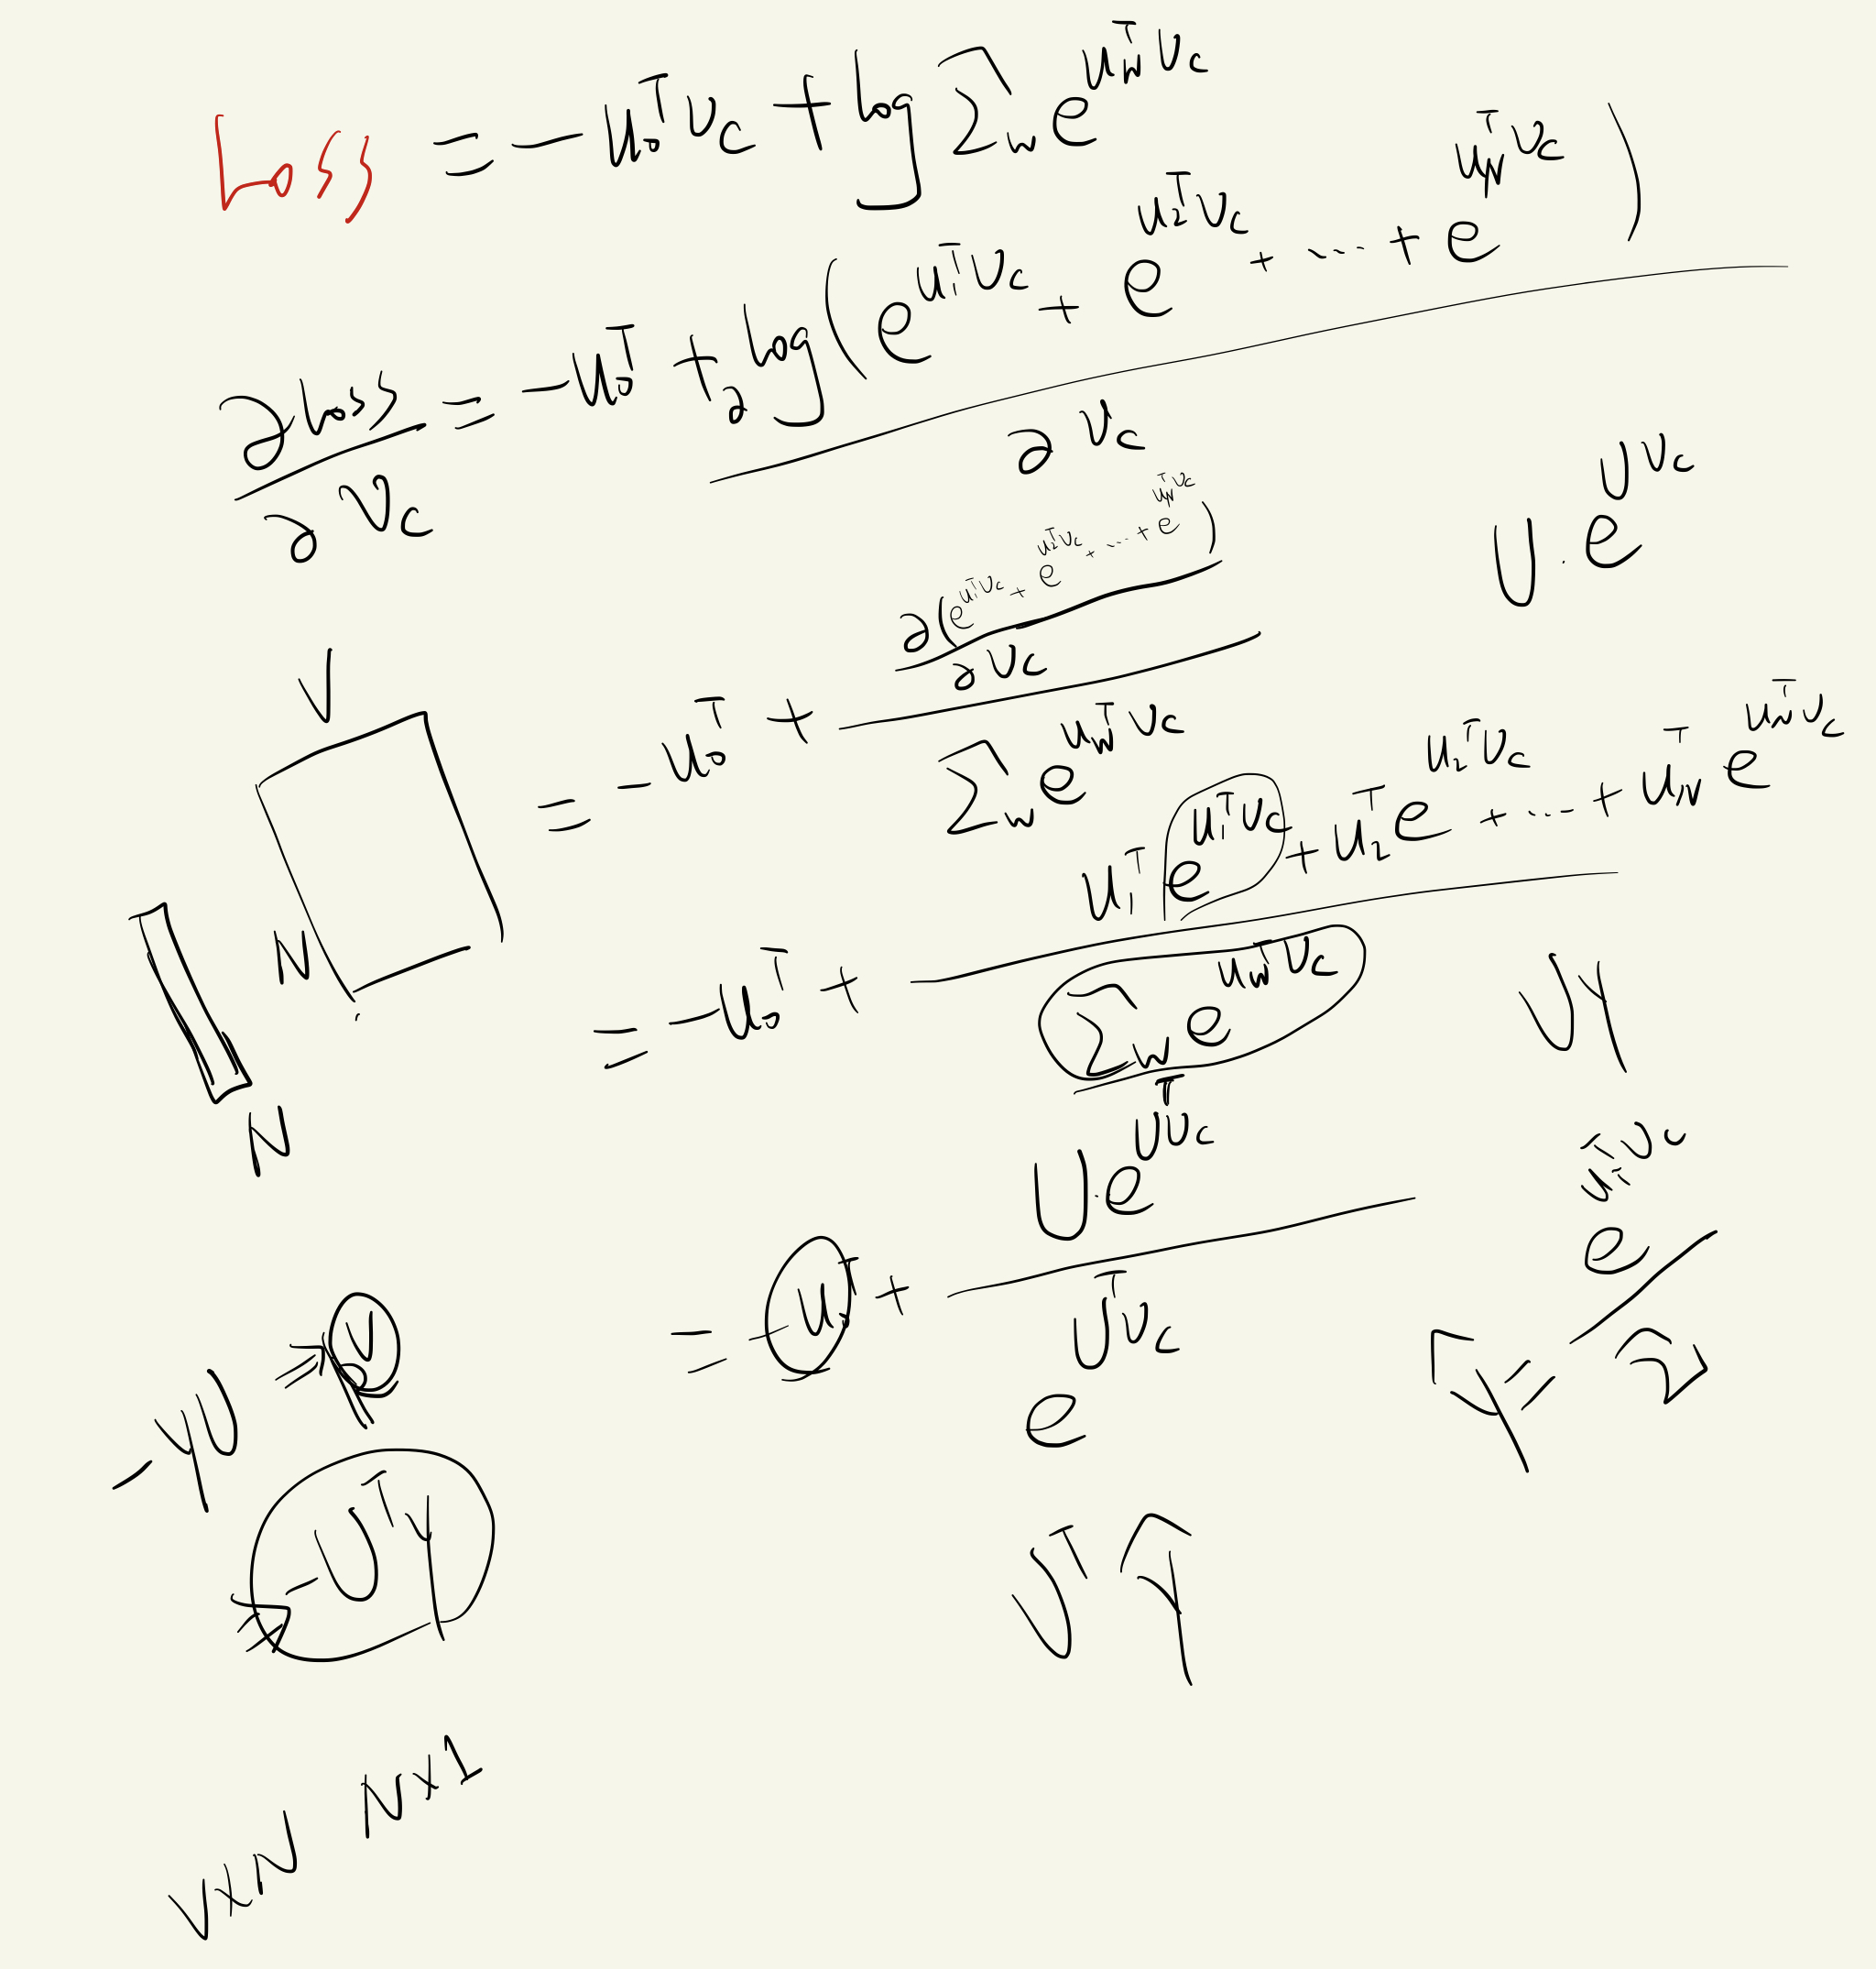 Loss = -u_o^T v_c + log Σ_w e^{u_w^T v_c}
∂loss/∂v_c = -u_o^T + ∂log(e^{u_1^T v_c} + e^{u_2^T v_c} + ... + e^{u_w^T v_c})/∂v_c
U · e^{U v_c}
= -u_o^T + (∂(e^{u_1^T v_c} + e^{u_2^T v_c} + ... + e^{u_w^T v_c})/∂v_c)/(Σ_w e^{u_w^T v_c})
V
N
N
= -u_o^T + (u_1^T e^{u_1^T v_c} + u_2^T e^{u_2^T v_c} + ... + u_w^T e^{u_w^T v_c})/(Σ_w e^{u_w^T v_c})
Uy
= -u_o^T + (U · e^{U^T v_c})/(e^{U^T v_c})
ŷ = e^{u_1^T v_c}/Σ
-yU ⇒
⇒ -U^T y
U^T ŷ
V×N N×1